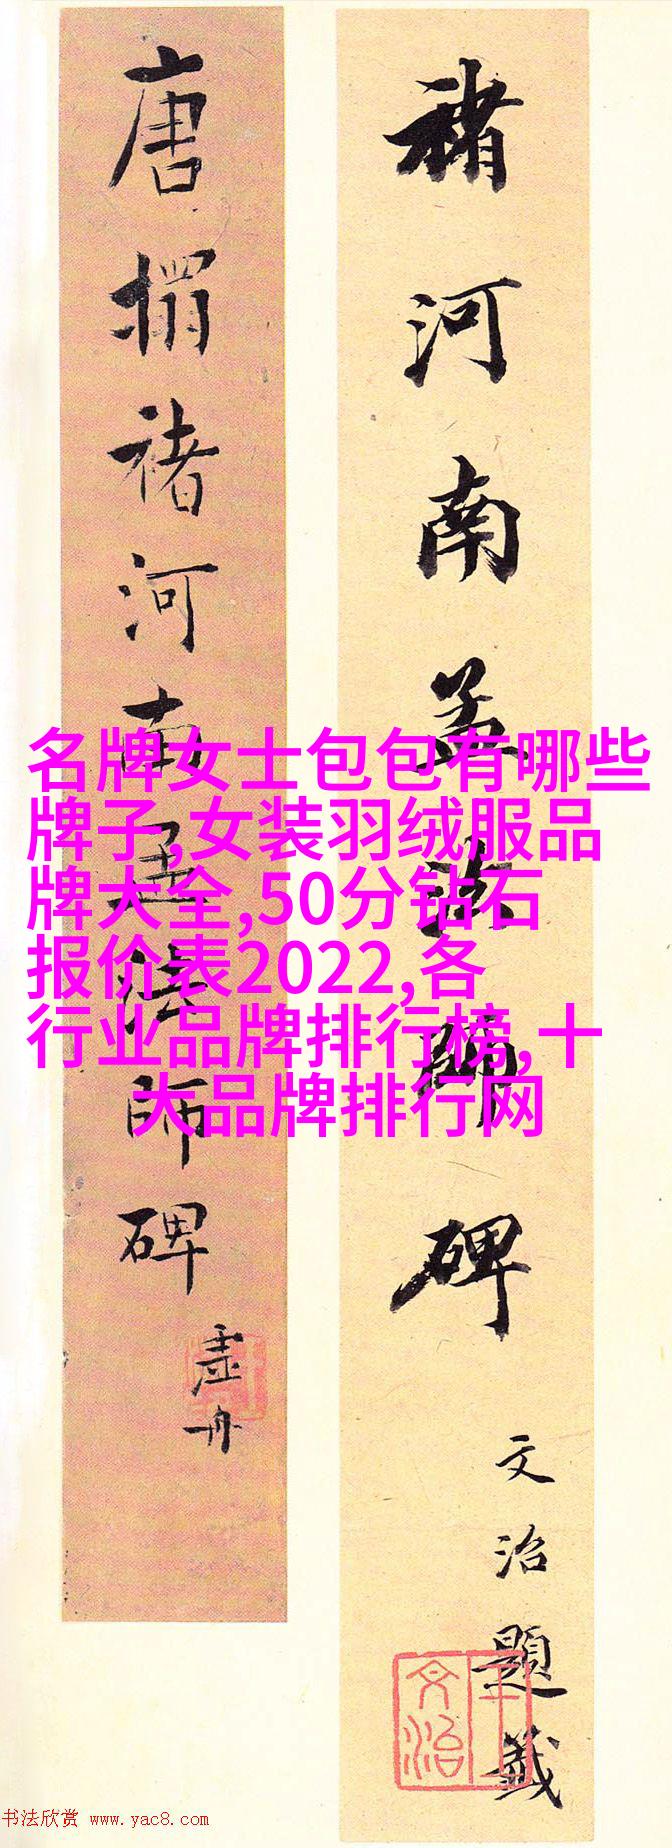 褚河南孟法師碑
文治題籤
王文治
唐搨褚河南孟法師碑
虛舟
名牌女士包包有哪些
牌子,女装羽绒服品
牌大全,50分钻石
报价表2022,各
行业品牌排行榜,十
大品牌排行网
书法欣赏 www.yac8.com